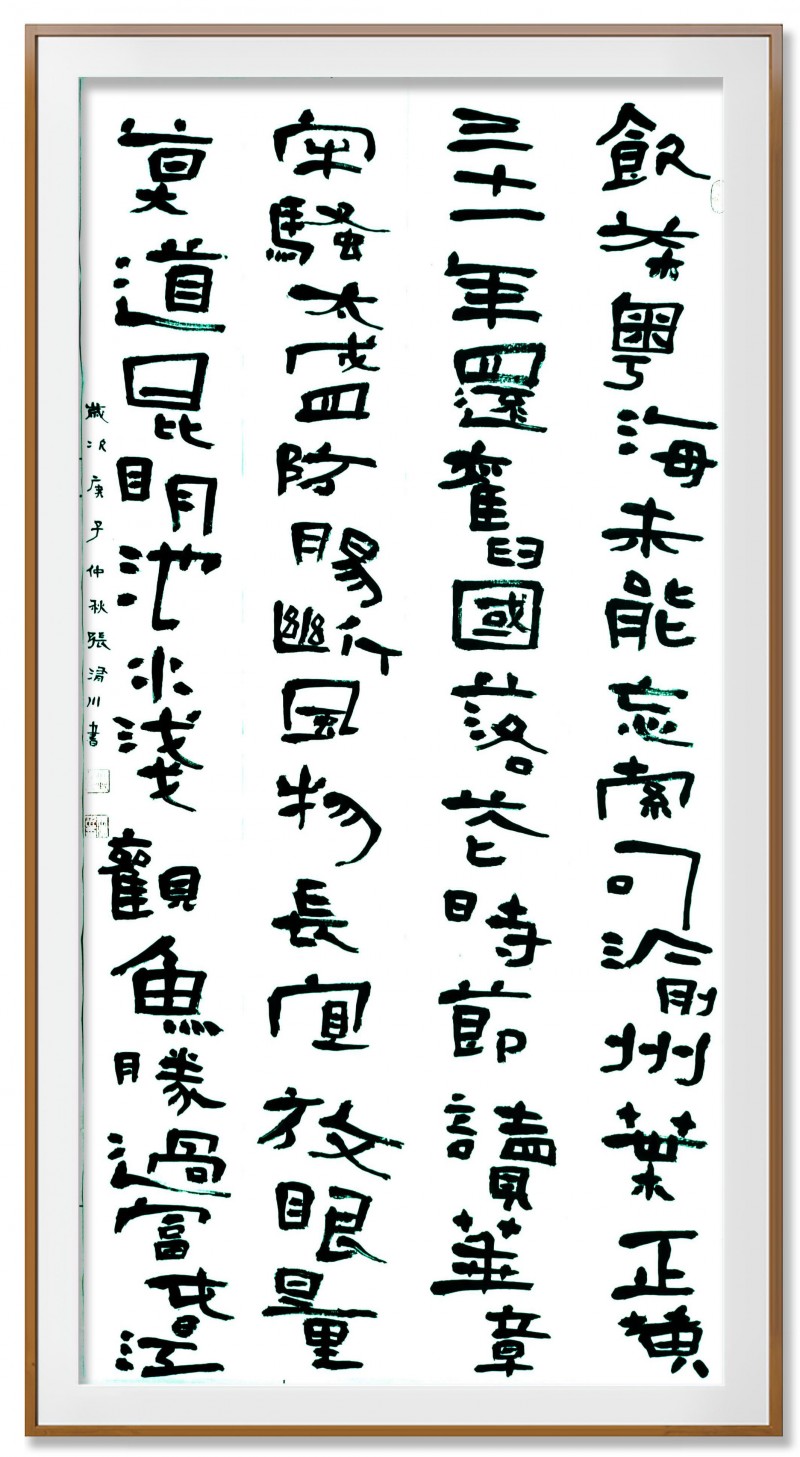 飲茶粵海未能忘索句渝州葉正黃
三十一年還舊國落花時節讀華章
牢騷太盛防腸斷風物長宜放眼量
莫道昆明池水淺觀魚勝過富春江
歲次庚子仲秋張川書